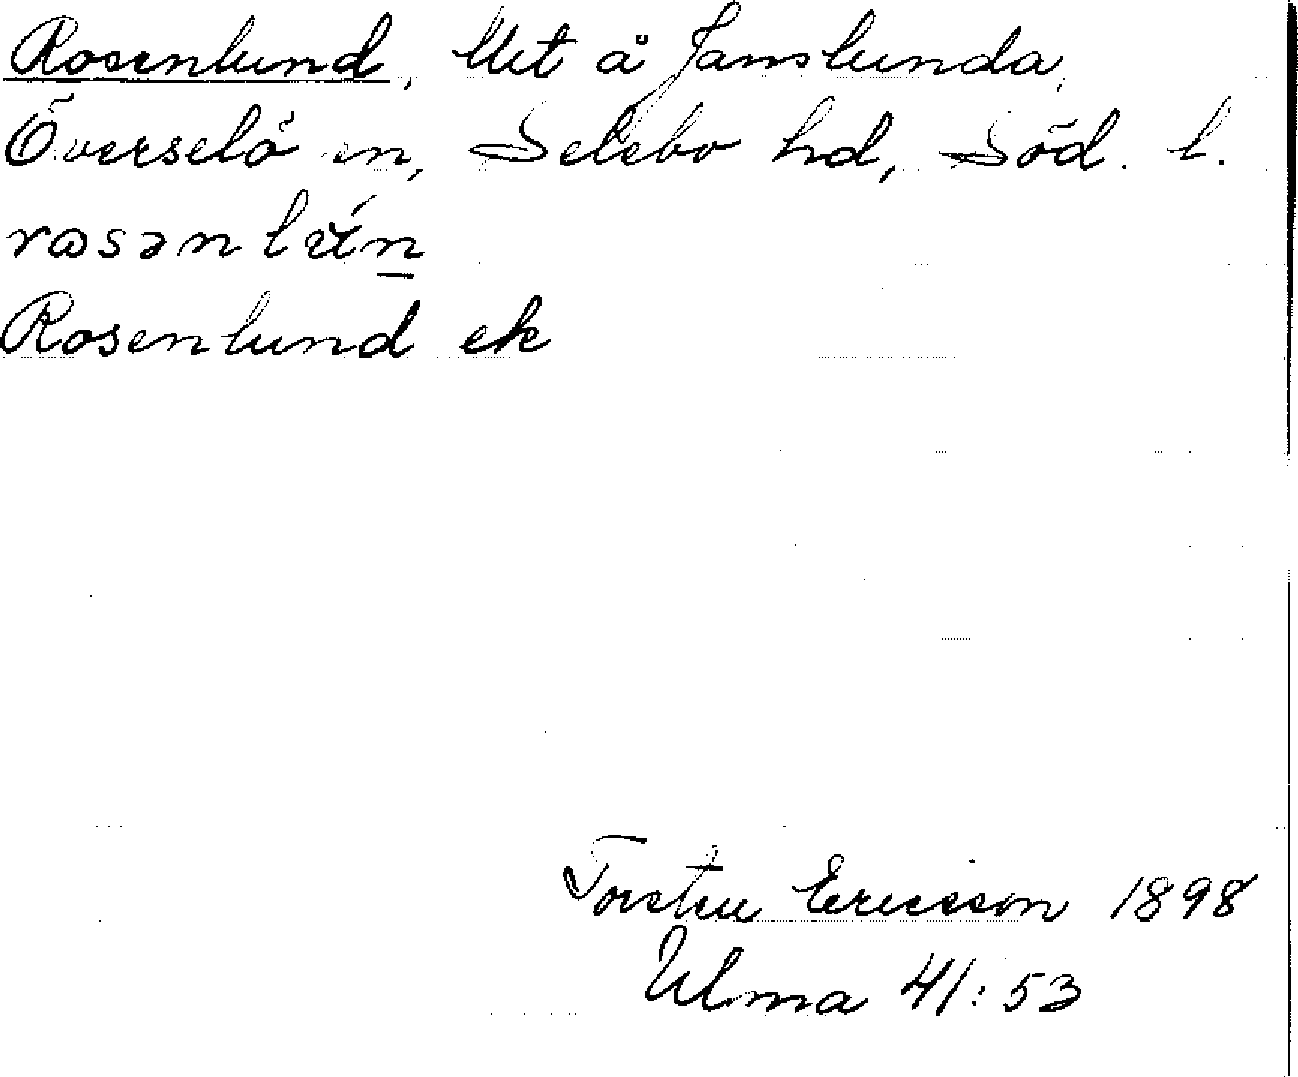 Rosenlund, Utet å Janslunda,
Överselö sn, Selebo hd, Söd. l.
rosənlún
Rosenlund ek
Torsten Ericsson 1898
Ulma 41:53